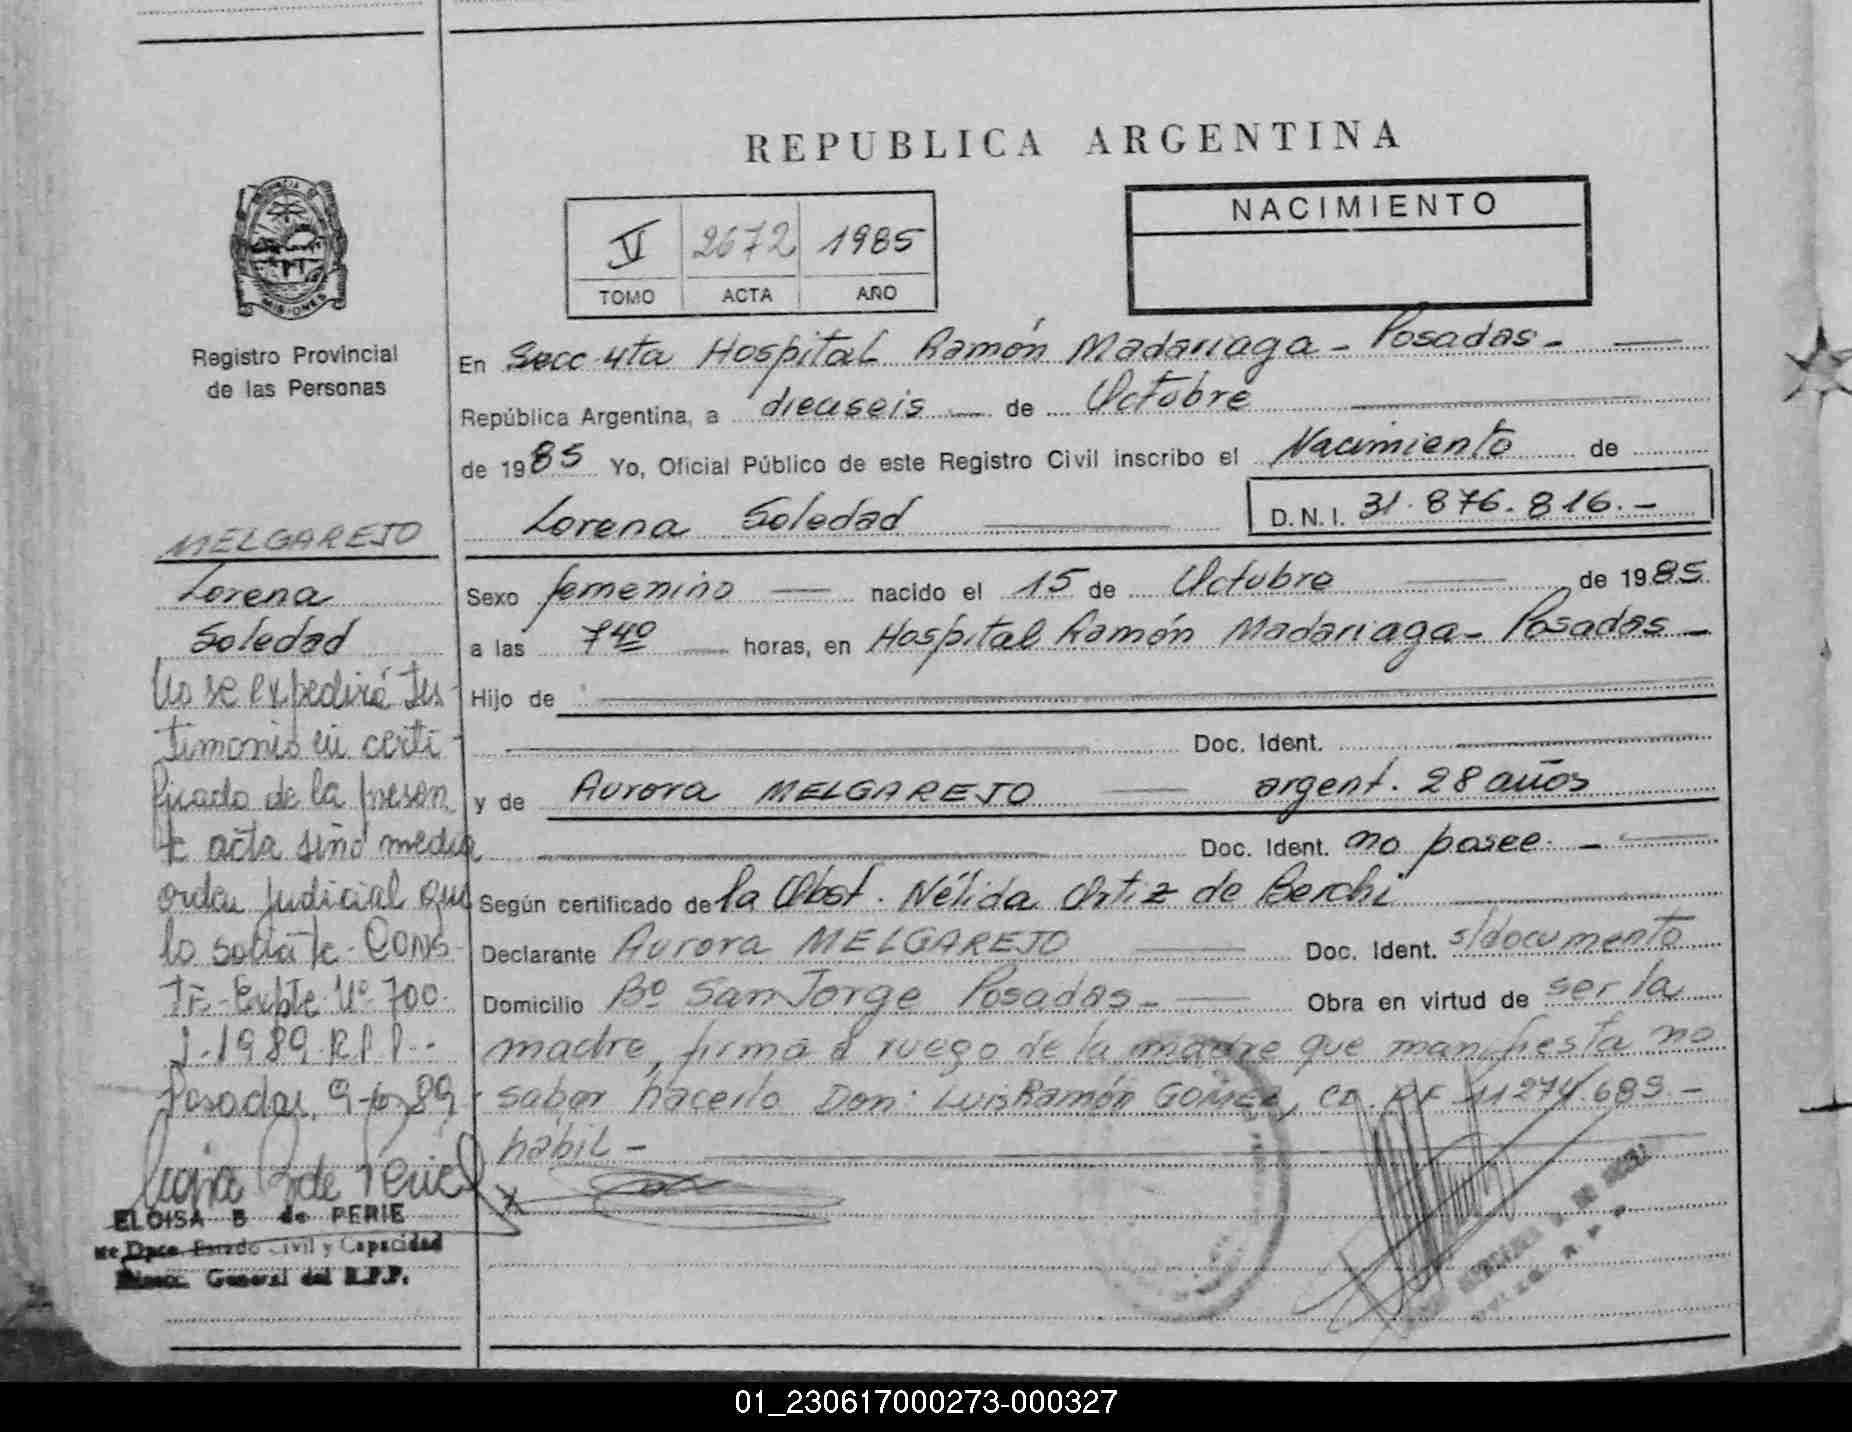 REPUBLICA ARGENTINA
V 2672 1985
TOMO ACTA AÑO
NACIMIENTO
PROVINCIA DE
MISIONES
Registro Provincial
de las Personas
En Secc 4ta Hospital Ramón Madariaga - Posadas -
República Argentina, a dieciseis de Octubre
de 1985 Yo, Oficial Público de este Registro Civil inscribo el Nacimiento de
Lorena Soledad D.N.I. 31.876.816.-
MELGAREJO
Lorena
Soledad
No se expedirá tes-
timonio ni certi-
ficado de la presen
te acta sino media
orden judicial que
lo solicite. Cons-
Tr. Expte. Nº 700.
1989. R.P.P.
Posadas, 9 89
ELOISA B de PERIE
Dpto. Estado Civil y Capacidad
Direcc. General del R.P.P.
Sexo femenino nacido el 15 de Octubre de 1985.
a las 7 40 horas, en Hospital Ramón Madariaga - Posadas -
Hijo de
Doc. Ident.
y de Aurora MELGAREJO argent. 28 años
Doc. Ident. no posee. -
Según certificado de la Obst. Nélida Ortiz de Berchi
Declarante Aurora MELGAREJO Doc. Ident. s/documento
Domicilio Bº San Jorge Posadas - Obra en virtud de ser la
madre, firma a ruego de la madre que manifiesta no
saber hacerlo Don: Luis Ramón GOMEZ, 11 274.689.-
hábil -
01_230617000273-000327